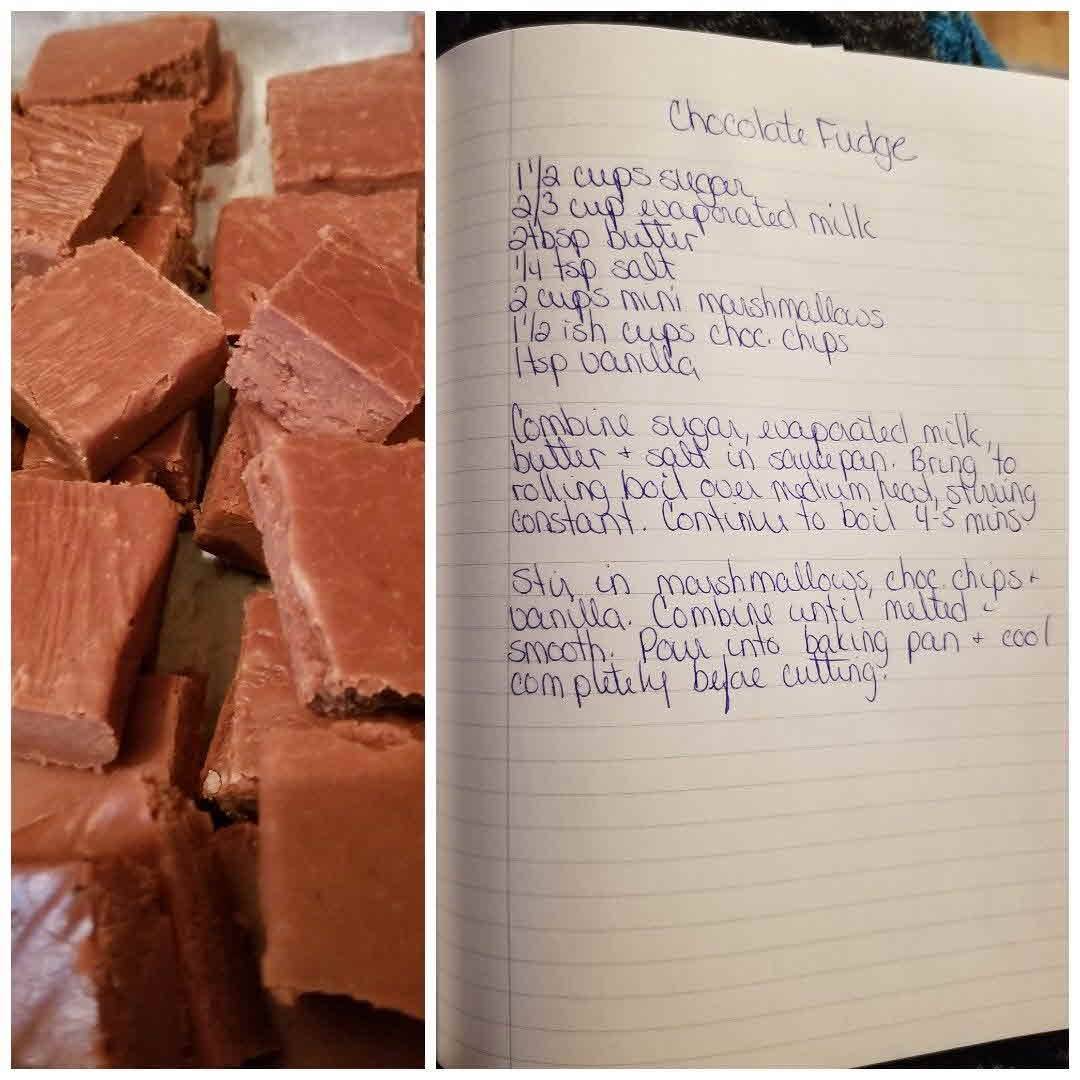 Chocolate Fudge
1 1/2 cups sugar
2/3 cup evaporated milk
2 tbsp butter
1/4 tsp salt
2 cups mini marshmallows
1 1/2 ish cups choc. chips
1 tsp vanilla
Combine sugar, evaporated milk,
butter + salt in saucepan. Bring to
rolling boil over medium heat, stirring
constant. Continue to boil 4-5 mins
Stir in marshmallows, choc. chips +
vanilla. Combine until melted +
smooth. Pour into baking pan + cool
completely before cutting.